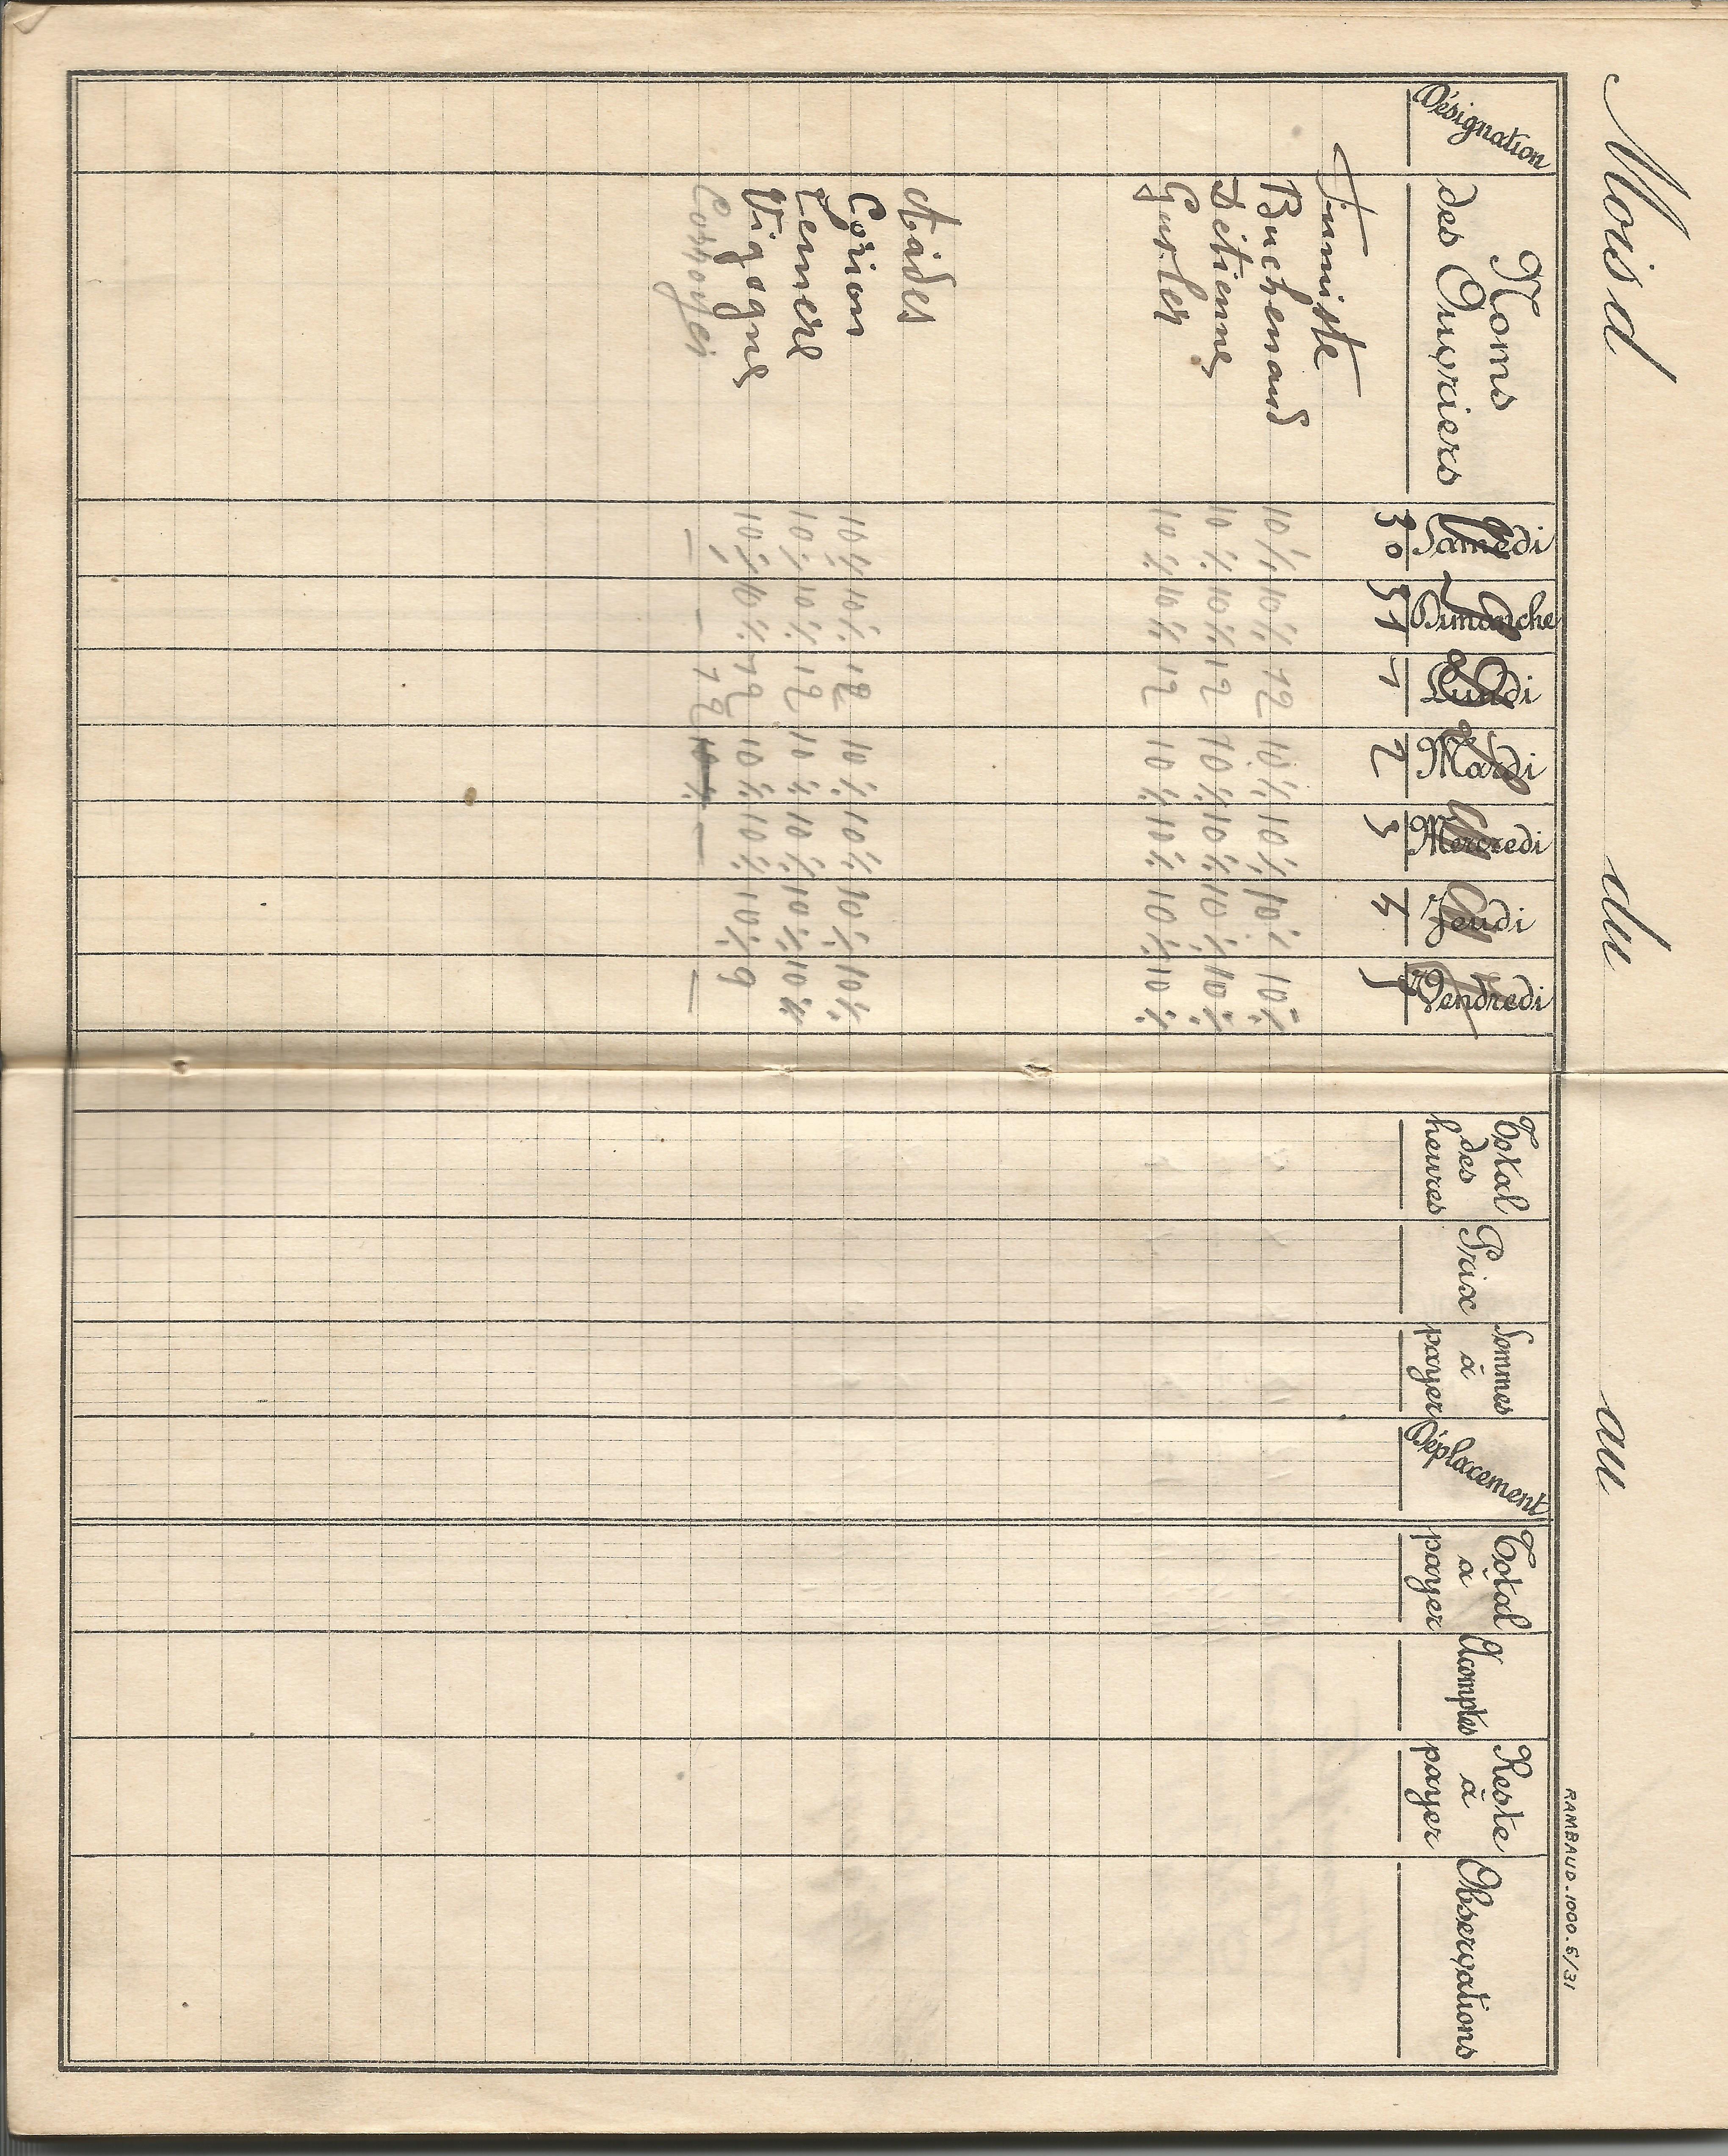 Mois d du au
RAMBAUD.1000.5/31
Désignation Noms des Ouvriers Samedi Dimanche Lundi Mardi Mercredi Jeudi Vendredi Total des heures Prix Sommes à payer Déplacement Total à payer Acomptes Reste à payer Observations
30 31 1 2 3 4 5
Fumiste
Buchenaud 10 ½ 10 ½ 12 10 ½ 10 ½ 10 ½ 10 ½
Détienne 10 ½ 10 ½ 12 10 ½ 10 ½ 10 ½ 10 ½
Gurler 10 ½ 10 ½ 12 10 ½ 10 ½ 10 ½ 10 ½
Aides
Corion 10 ½ 10 ½ 12 10 ½ 10 ½ 10 ½ 10 ½
10 ½ 10 ½ 12 10 ½ 10 ½ 10 ½ 10 ½
Vigogne 10 ½ 10 ½ 12 10 ½ 10 ½ 10 ½ 9
— — 12 — —